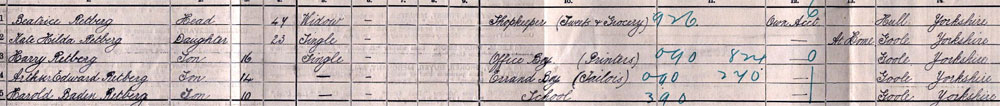 1 Beatrice Retberg Head 47 Widow — Shopkeeper (Sweets & Grocery) 926 Own Acct 6 Hull Yorkshire
2 Kate Hilda Retberg Daughter 23 Single — At Home Goole Yorkshire
3 Harry Retberg Son 16 Single — Office Boy (Printers) 090 824 0 Goole Yorkshire
4 Arthur Edward Retberg Son 14 — — Errand Boy (Tailors) 090 240 1 Goole Yorkshire
5 Harold Baden Retberg Son 10 — — School 390 1 Goole Yorkshire